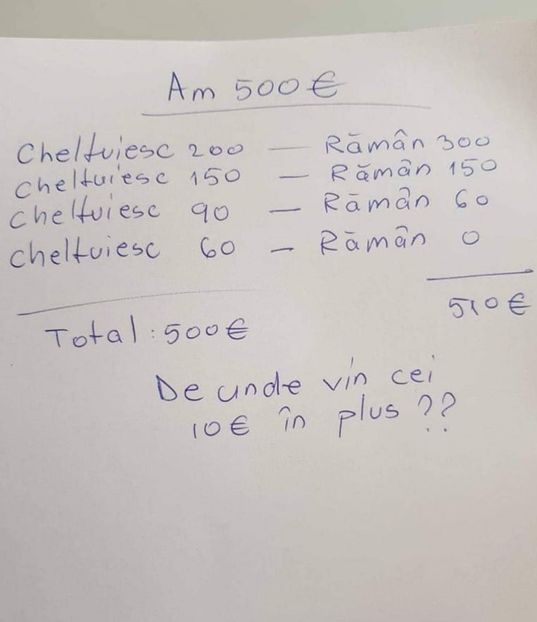 Am 500€
Cheltuiesc 200 — Rămân 300
Cheltuiesc 150 — Rămân 150
Cheltuiesc 90 — Rămân 60
Cheltuiesc 60 — Rămân 0
510€
Total: 500€
De unde vin cei
10€ în plus??